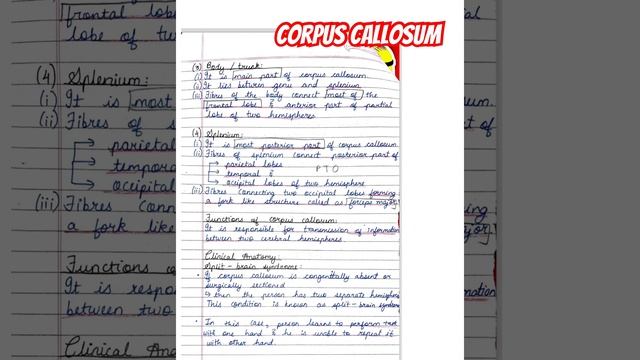 CORPUS CALLOSUM
(3) Body / trunk:
(i) It is main part of corpus callosum.
(ii) It lies between genu and splenium.
(iii) Fibres of the body connect most of the
frontal lobe & anterior part of partial
lobe of two hemispheres
(4) Splenium:
(i) It is most posterior part of corpus callosum.
(ii) Fibres of splenium connect posterior part of
→ parietal lobes
→ temporal &
→ occipital lobes of two hemisphere
P T O
(iii) Fibres connecting two occipital lobes forming
a fork like structure called as forceps major
Functions of corpus callosum:
It is responsible for transmission of information
between two cerebral hemispheres.
Clinical Anatomy:
Split-brain syndrome:
• If corpus callosum is congenitally absent or
surgically sectioned
↳ then the person has two separate hemisphere
This condition is known as split-brain syndrome
• In this case, person learns to perform task
with one hand & he is unable to repeat it
with other hand.
frontal lobe
lobe of two
(4) Splenium:
(i) It is most
(ii) Fibres of s
→ parietal
→ temporal
→ occipital
(iii) Fibres conn
a fork like
Functions o
It is respo
between two
Clinical Ana